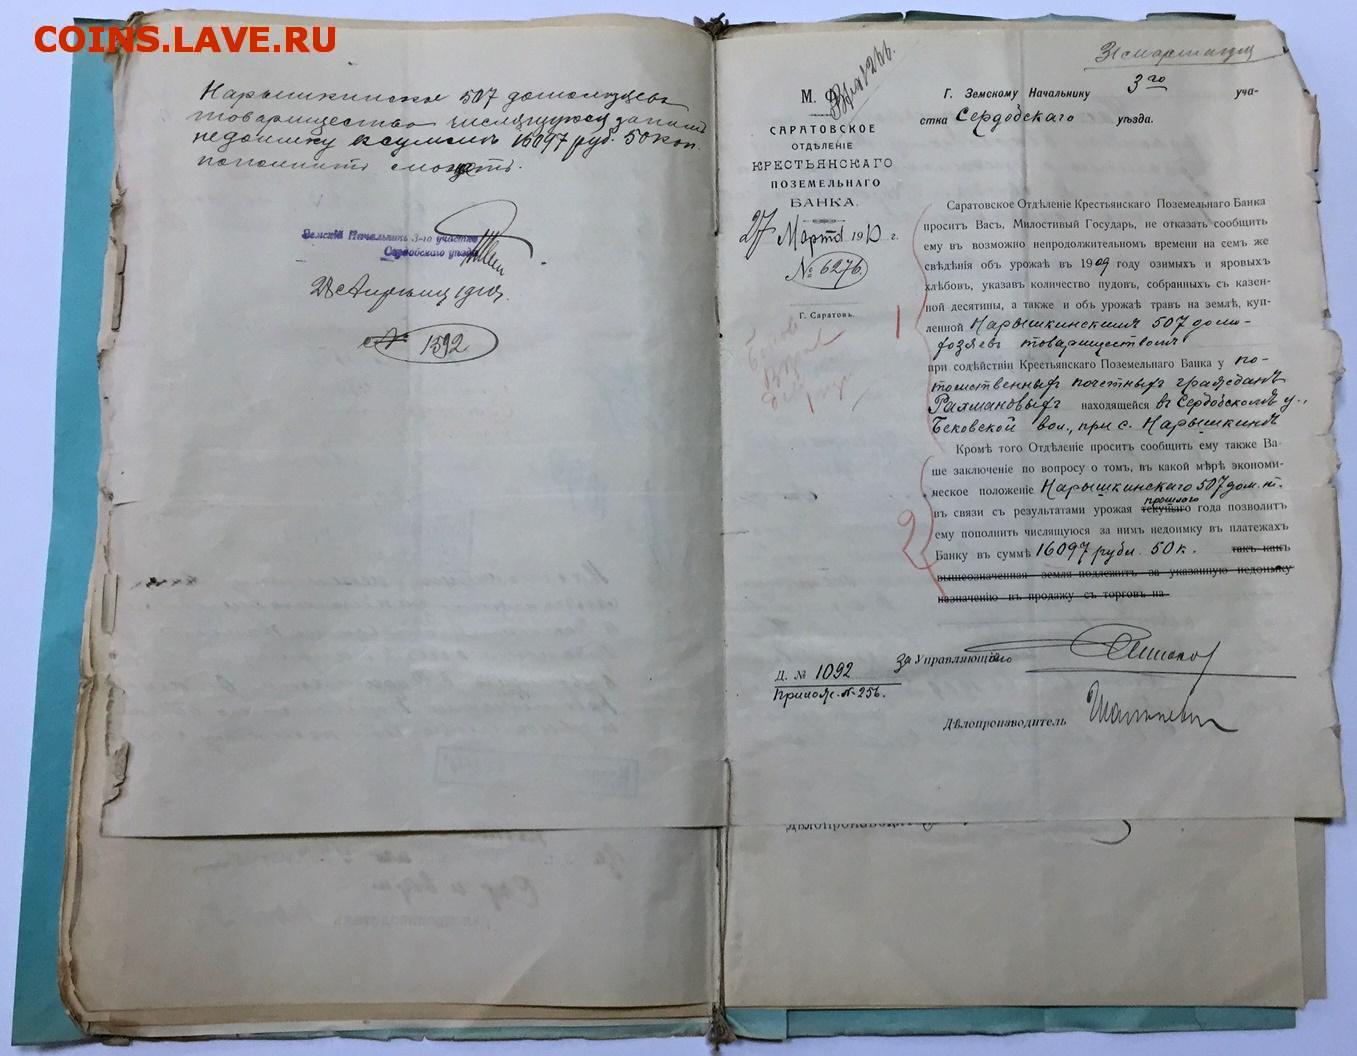 COINS.LAVE.RU
Нарышкинское 507 домохозяевъ
товарищество числящуюся за нимъ
недоимку въ суммѣ 16097 руб. 50 коп.
пополнить сможетъ.
Земскій Начальникъ 3-го участка
Сердобскаго уѣзда
28 Апрѣля 1910 г.
№ 1592
31 марта
М. Ф.
САРАТОВСКОЕ
ОТДѢЛЕНІЕ
КРЕСТЬЯНСКАГО
ПОЗЕМЕЛЬНАГО
БАНКА.
27 Марта 1910 г.
№ 6276.
Г. Саратовъ.
Г. Земскому Начальнику 3го уча-
стка Сердобскаго уѣзда.
1
Саратовское Отдѣленіе Крестьянскаго Поземельнаго Банка
проситъ Васъ, Милостивый Государь, не отказать сообщить
ему въ возможно непродолжительномъ времени на семъ же
свѣдѣнія объ урожаѣ въ 1909 году озимыхъ и яровыхъ
хлѣбовъ, указавъ количество пудовъ, собранныхъ съ казен-
ной десятины, а также и объ урожаѣ травъ на землѣ, куп-
ленной Нарышкинскимъ 507 домо-
хозяевъ товариществомъ
при содѣйствіи Крестьянскаго Поземельнаго Банка у по-
томственныхъ почетныхъ гражданъ
Рахмановыхъ находящейся въ Сердобскомъ у.,
Бековской вол., при с. Нарышкинѣ
2
Кромѣ того Отдѣленіе проситъ сообщить ему также Ва-
ше заключеніе по вопросу о томъ, въ какой мѣрѣ экономи-
ческое положеніе Нарышкинскаго 507 дом. т.
въ связи съ результатами урожая текущаго прошлаго года позволитъ
ему пополнить числящуюся за нимъ недоимку въ платежахъ
Банку въ суммѣ 16097 рубл. 50 к. такъ какъ
вышеозначенная земля подлежитъ за указанную недоимку
назначенію въ продажу съ торговъ на
За Управляющаго
Д. № 1092
Прилож. № 256.
Дѣлопроизводитель